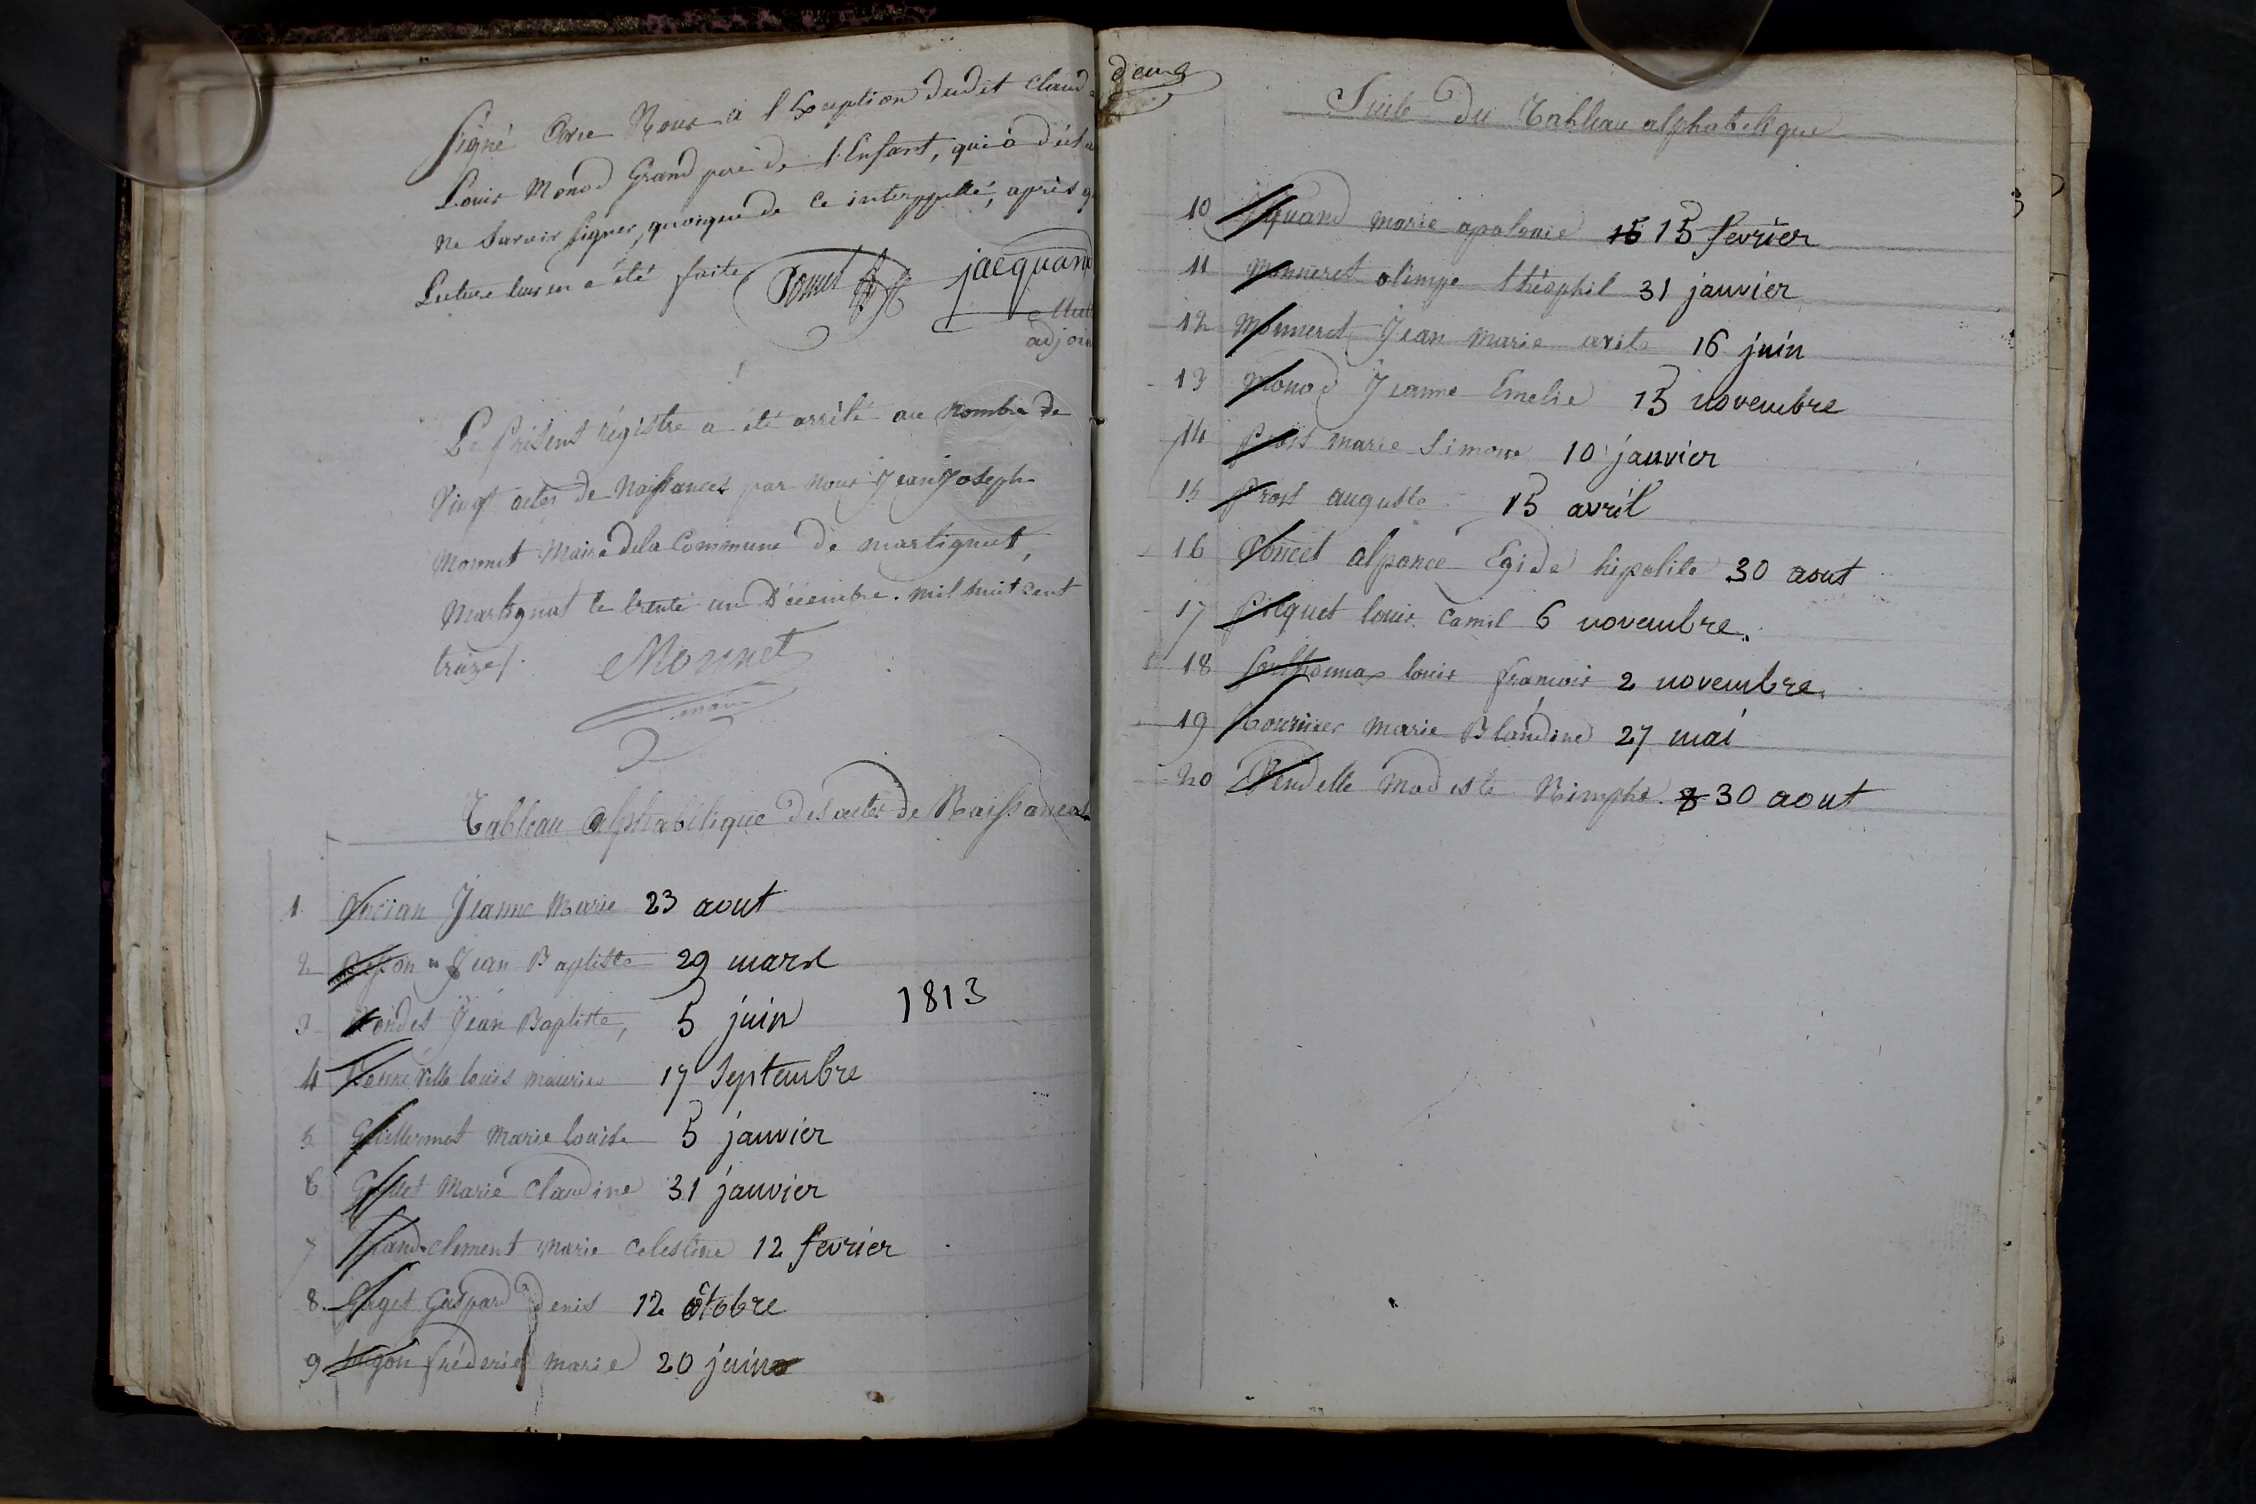 Signé Avec Nous à l'Exception dudit Claud
Louis Monod Grand père de l'Enfant, qui à déclaré
Ne Savoir Signer, quoique de ce interppellé, après q
Lecture leur en a été faite Poncet jacquand
adjoin
Le présent régistre a été arrêté au Nombre de
Vingt actes de Naissances par Nous Jean Joseph
Monnet Maire de la Commune de martignat,
Martignat le trente un Décembre. mil huit cent
treize/. Monnet
maire
Tableau alphabétique des actes de Naissances
1 Jeanne Marie 23 aout
2 Jean Baptiste 29 mars
3 Jean Baptiste, 5 juin
1813
4 Bonneville louis maurice 17 Septembre
5 Guillermet Marie louise 5 janvier
6 Marie Claudine 31 janvier
7 Grand-clement marie celestine 12 fevrier
8. Goyet Gaspard denis 12 octobre
9 frédéric marie 20 juin
deux
Suite du Tableau alphabétique
10 Jquand marie apolonie 15 15 fevrier
11 Monneret olimpe théophil 31 janvier
12 Monneret Jean Marie avite 16 juin
13 Monod Jeanne Emelie 15 novembre
14 Prost marie Simone 10 janvier
15 Prost auguste 15 avril
16 Poncet alponce Egide hipolite 30 aout
17 Picquet louis Camil 6 novembre.
18 louis francois 2 novembre.
19 Tournier Marie Blandine 27 mai
20 Vendelle Modeste Nimphe. 8 30 aout